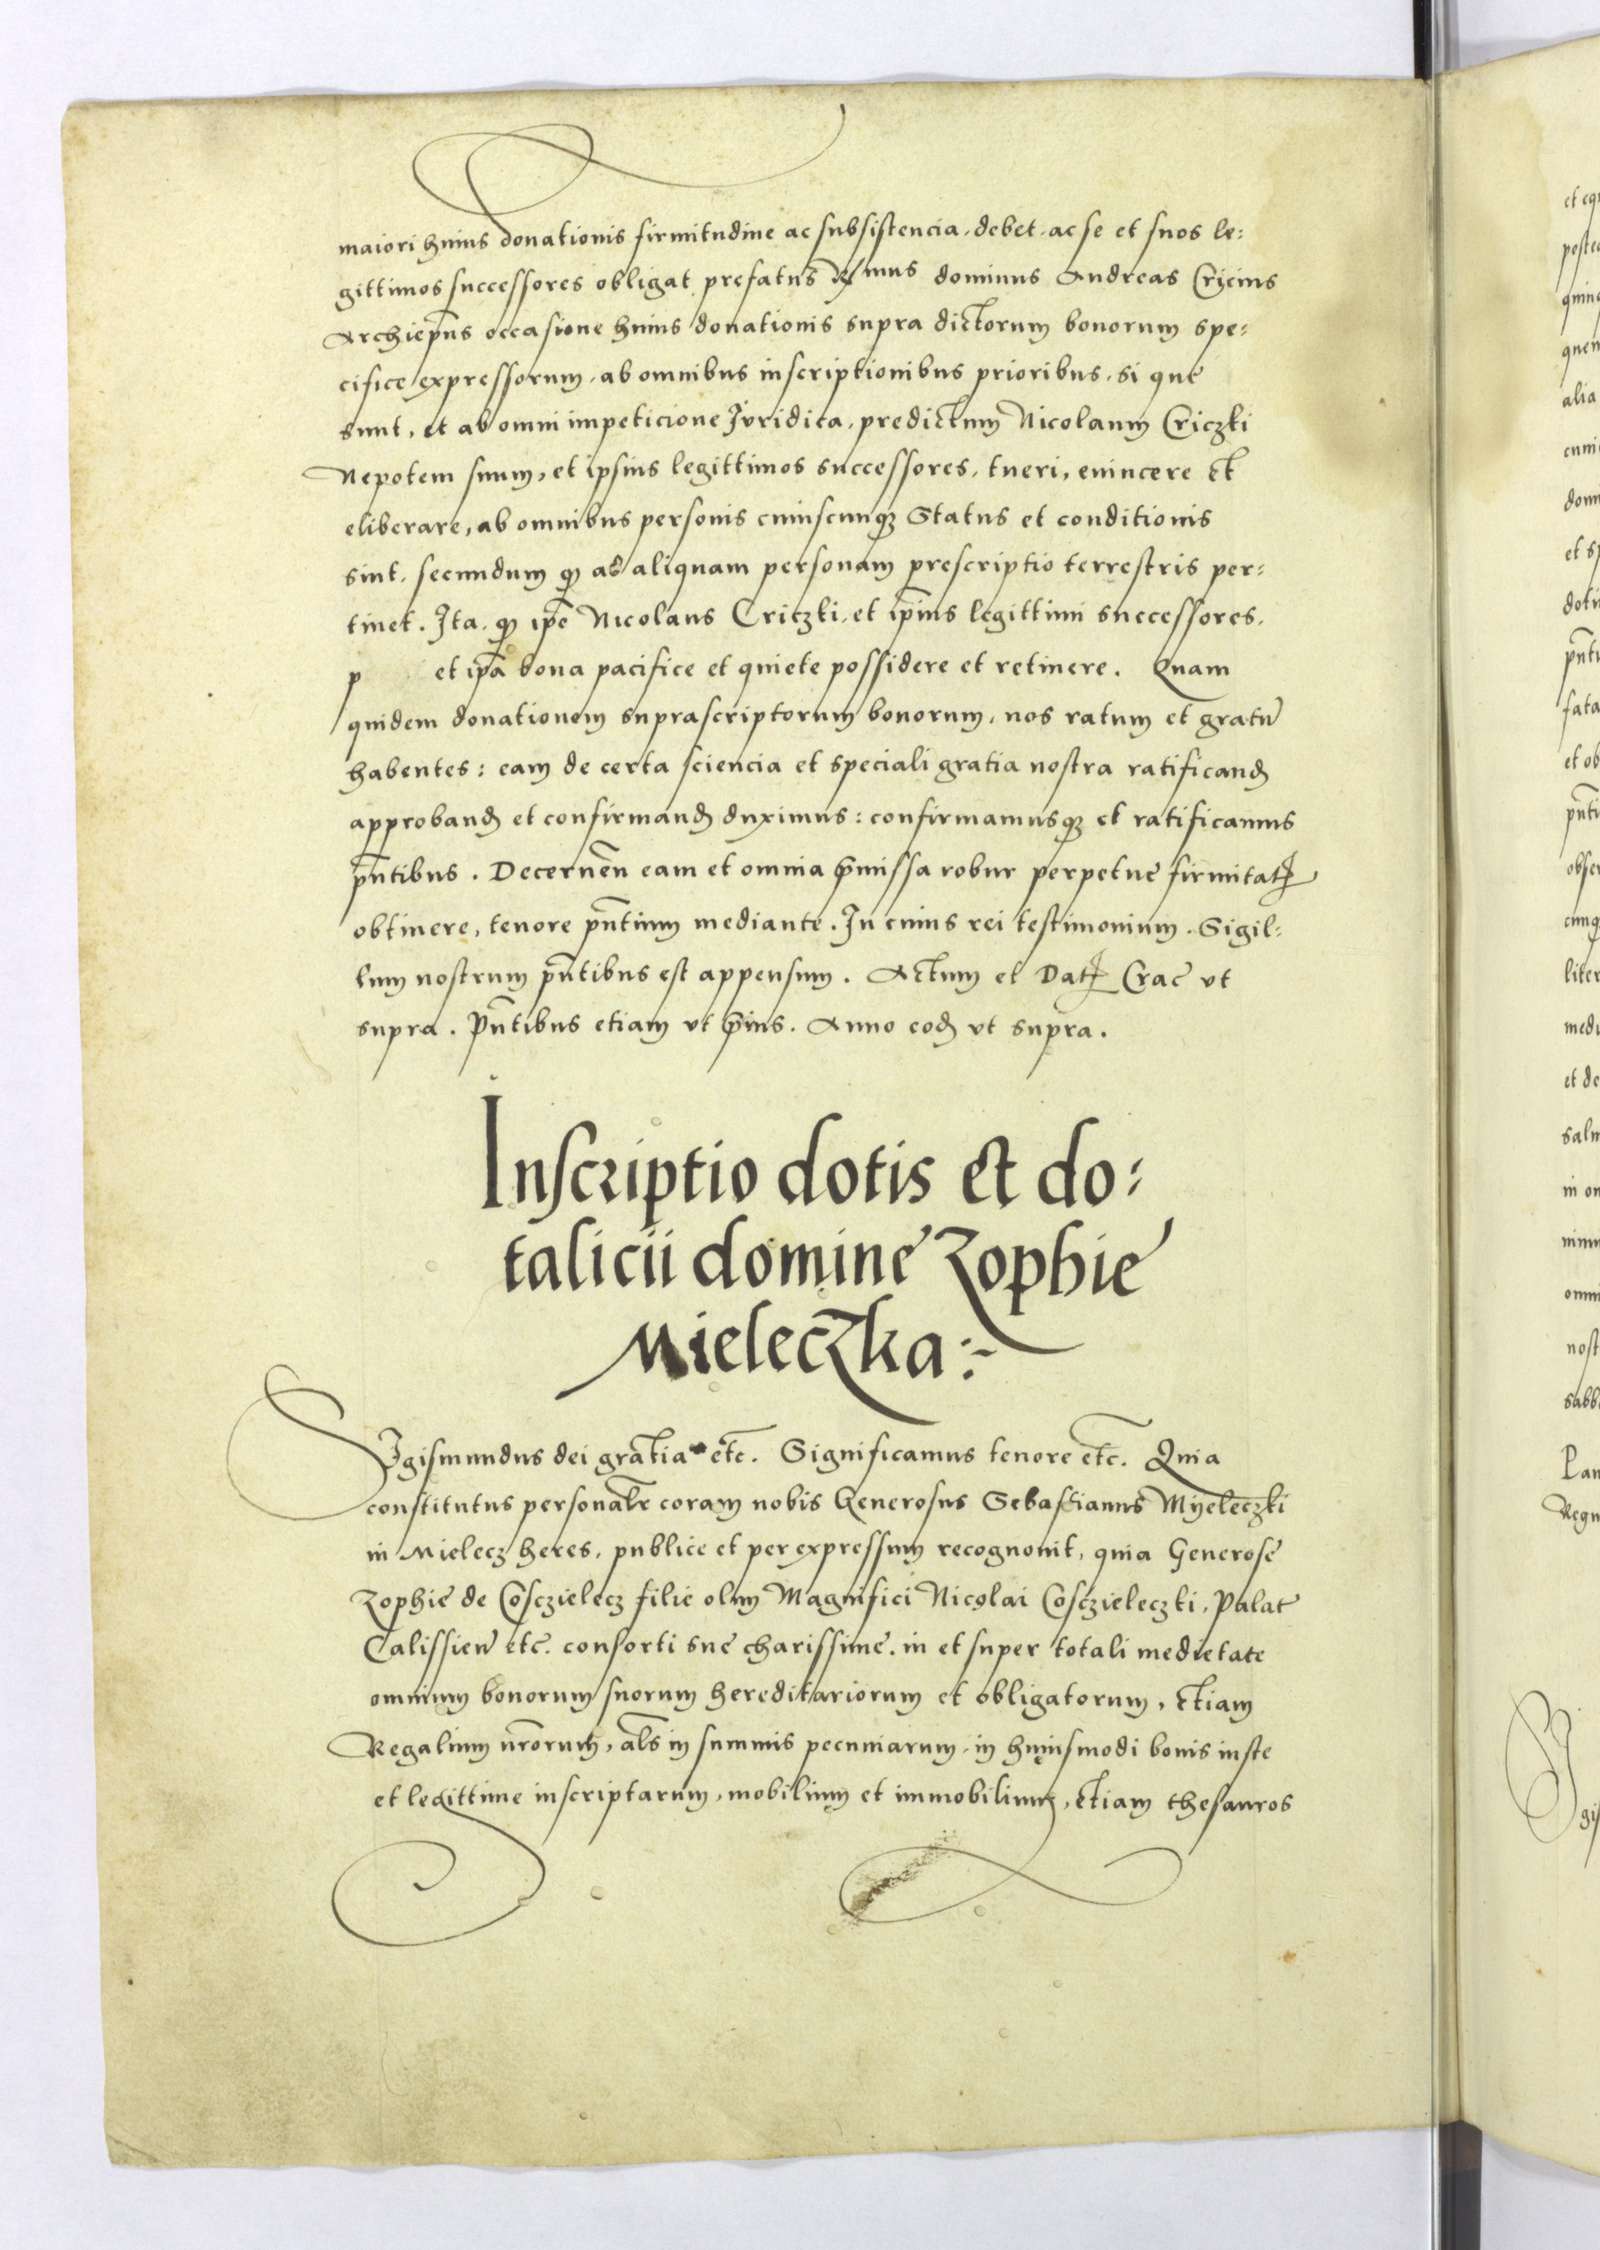 maiori huius donationis firmitudine ac subsistencia, debet, ac se et suos le:
gittimos successores obligat prefatus R̃mus dominus Andreas Cricius
Archiep̃us occasione huius donationis supra dictorum bonorum spe:
cifice expressorum, ab omnibus inscriptionibus prioribus, si que
sunt, et ab omni impeticione Juridica, predictum Nicolaum Criczki
Nepotem suum, et ipsius legittimos successores, tueri, euincere et
eliberare, ab omnibus personis cuiuscunqꝫ Status et conditionis
sint, secundum qꝫ ad aliquam personam prescriptio terrestris per:
tinet. Ita, qꝫ ip̃e Nicolaus Criczki, et ip̃ius legittimi successores,
p et ip̃a bona pacifice et quiete possidere et retinere. Quam
quidem donationem suprascriptorum bonorum, nos ratum et gratũ
habentes: eam de certa sciencia et speciali gratia nostra ratificanđ
approbanđ et confirmanđ duximus: confirmamusqꝫ et ratificamus
pñtibus. Decerneñ eam et omnia p̃missa robur perpetuę firmitatꝭ
obtinere, tenore pñtium mediante. In cuius rei testimonium. Sigil:
lum nostrum pñtibus est appensum. Actum et Datꝭ Crac̃ vt
supra. Pñtibus etiam vt p̃ius. Anno eođ vt supra.
Inscriptio dotis et do:
talicii dominę Zophię
Mieleczka:~
Sigismundus dei gratia etc̃. Significamus tenore etc̃. Quia
constitutus personalr̃ coram nobis Generosus Sebastianus Myeleczki
in Mielecz heres, publice et per expressum recognouit, quia Generosę
Zophię de Cosczielecz filię olim Magnifici Nicolai Cosczieleczki, Palat̃
Calissieñ etc̃. consorti suę charissimę, in et super totali medietate
omnium bonorum suorum hereditariorum et obligatorum, etiam
Regalium nr̃orum, al̃s in summis pecuniarum, in huiusmodi bonis iuste
et legittime inscriptarum, mobilium et immobilium, etiam thesauros